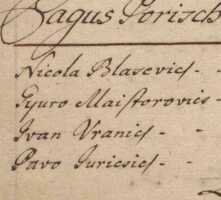 Pagus Porisch
Nicola Blasevics - -
Gyuro Maistorovics -
Ivan Vranics - -
Pavo Iuricsics - -